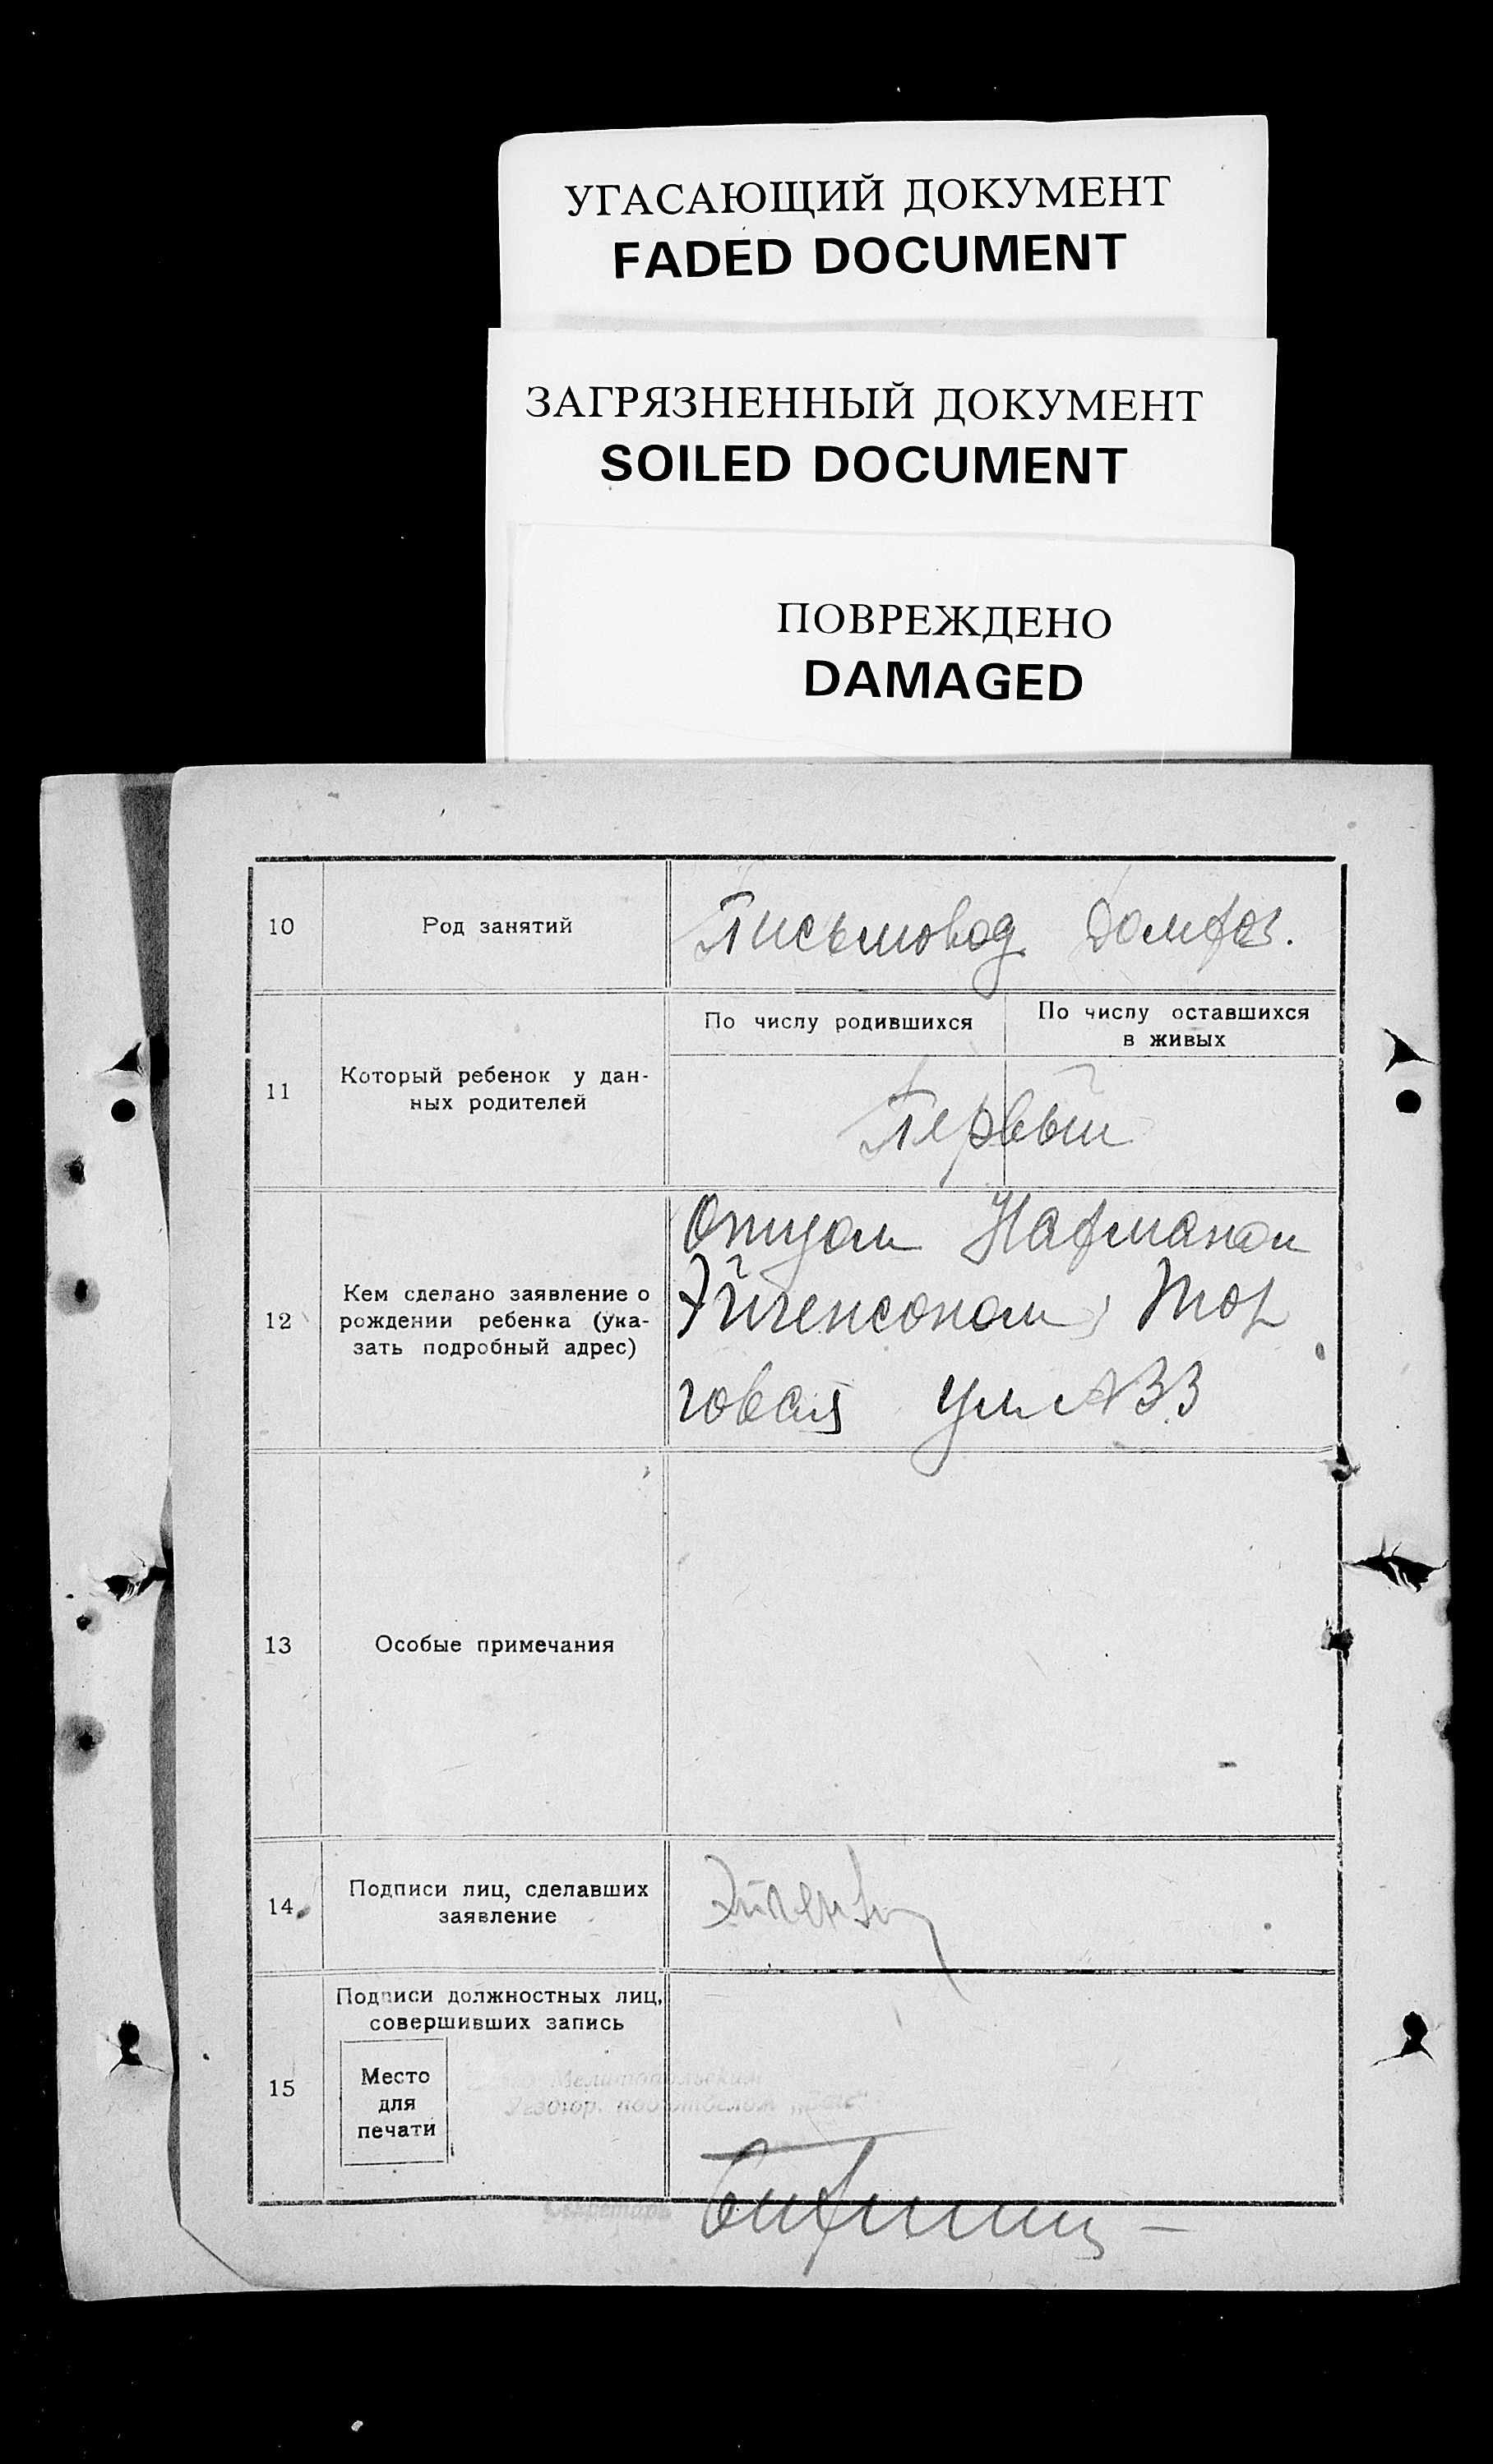 УГАСАЮЩИЙ ДОКУМЕНТ
FADED DOCUMENT
ЗАГРЯЗНЕННЫЙ ДОКУМЕНТ
SOILED DOCUMENT
ПОВРЕЖДЕНО
DAMAGED
10
Род занятий
Письмовод
11
Который ребенок у дан-
ных родителей
По числу родившихся
По числу оставшихся
в живых
Первый
12
Кем сделано заявление о
рождении ребенка (ука-
зать подробный адрес)
Отцом
Эйгенсоном, Тор
говая ул № 33
13
Особые примечания
14
Подписи лиц, сделавших
заявление
15
Подписи должностных лиц,
совершивших запись
Место
для
печати
Мелитопольским
подотделом „Загс"
Секретарь